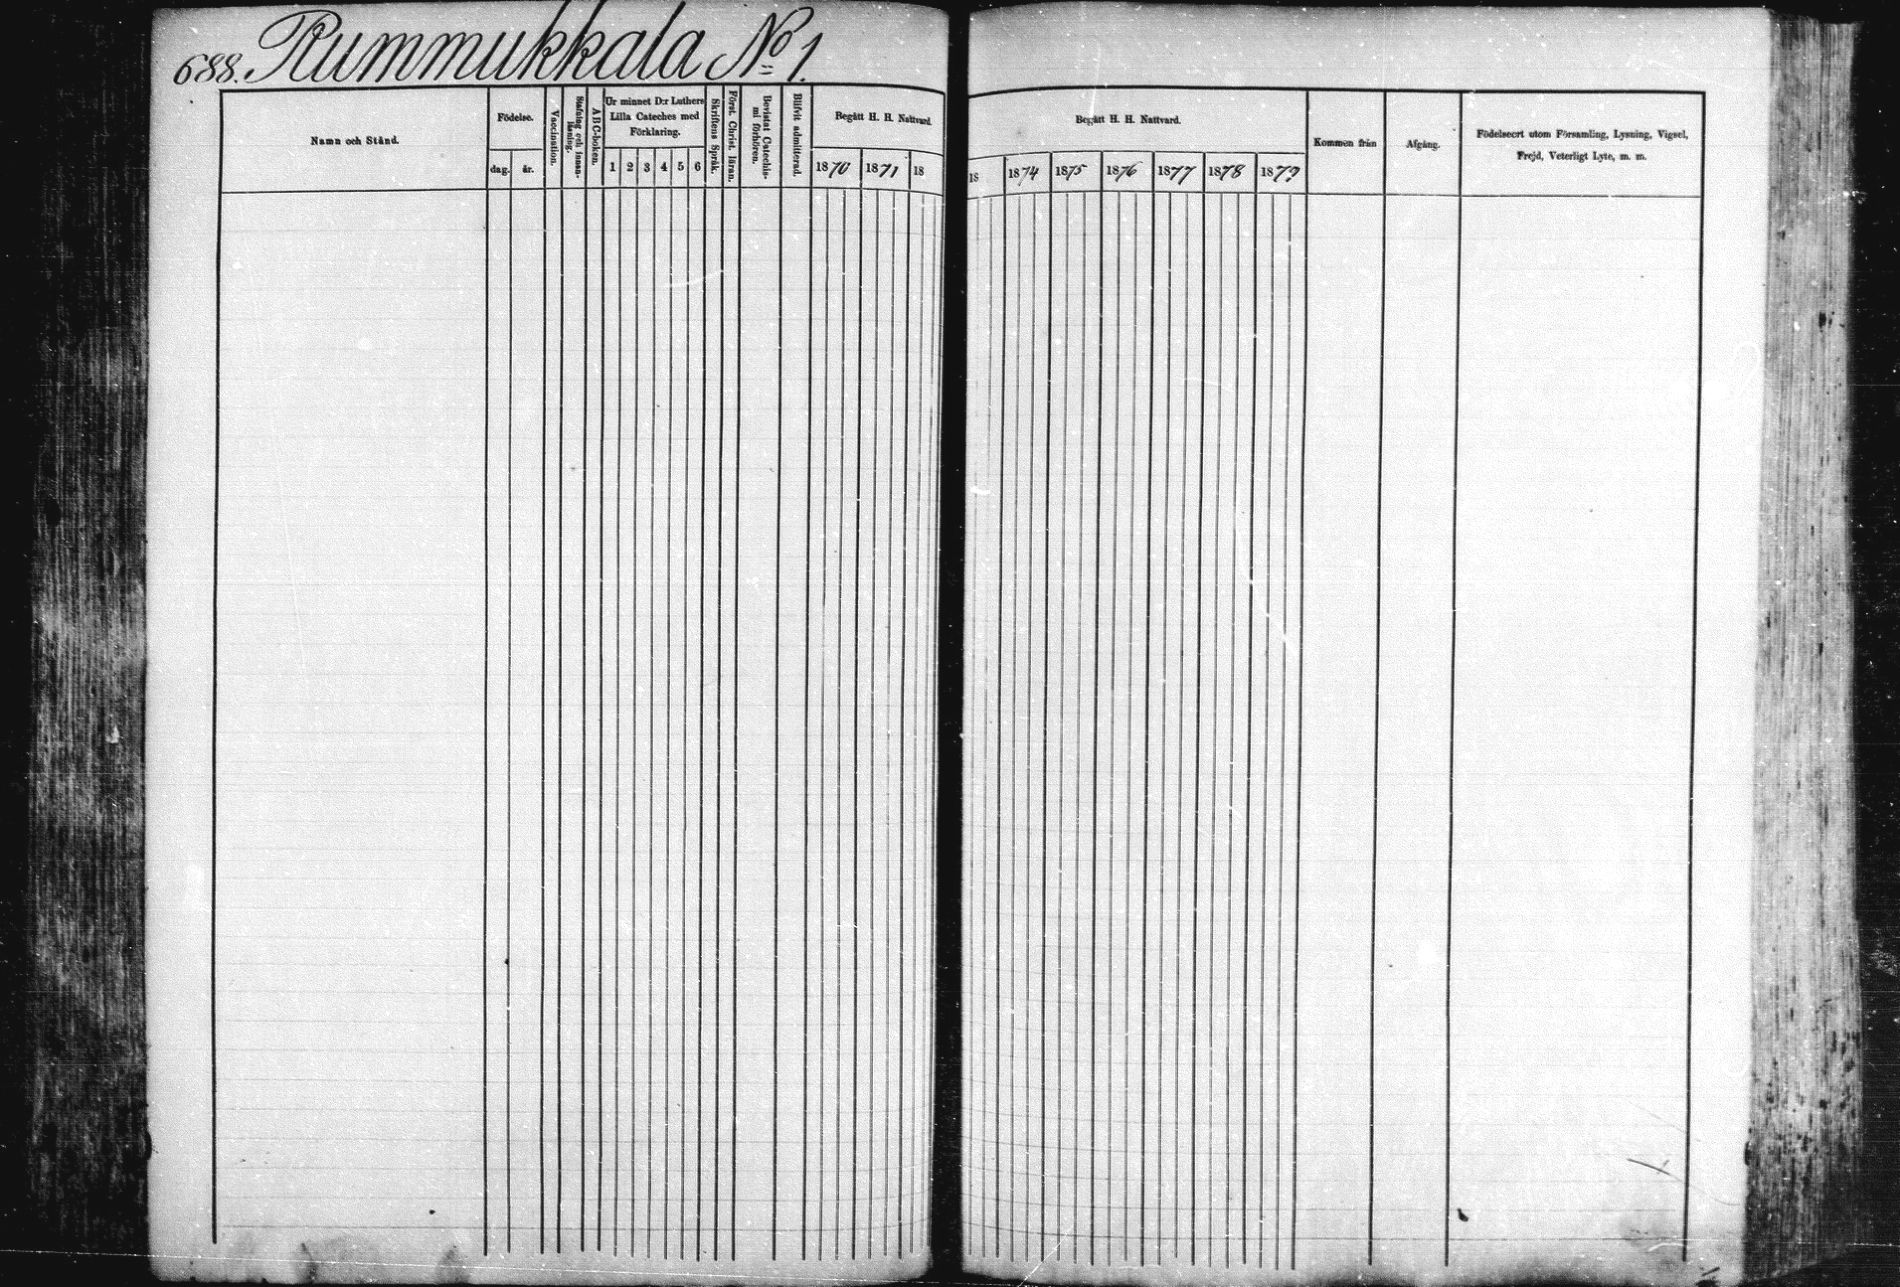 688. Rummukkala No 1.
Namn och Stånd.
Födelse.
dag.
år.
Vaccination.
Stafning och innan-
läsning.
ABC-boken.
Ur minnet D:r Luthers
Lilla Cateches med
Förklaring.
1 2 3 4 5 6
Skriftens Språk.
Först. Christ. läran.
Bevistat Catechis-
mi förhören.
Blifvit admitterad.
Begått H. H. Nattvard.
1870 1871 18
Begått H. H. Nattvard.
18 1874 1875 1876 1877 1878 1879
Kommen från
Afgång.
Födelseort utom Församling, Lysning, Vigsel,
Frejd, Veterligt Lyte, m. m.